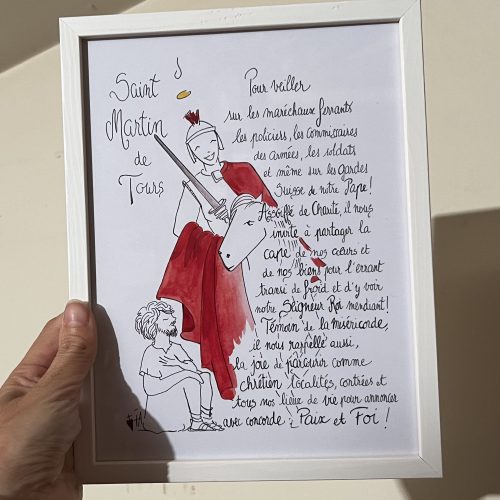 Saint
Martin
de
Tours
Pour veiller
sur les maréchaux ferrants
les policiers, les commissaires
des armées, les soldats
et même sur les gardes
Suisse de notre Pape !
Assoiffé de Charité, il nous
invite à partager la
cape de nos cœurs et
de nos biens pour l'errant
transi de froid et d'y voir
notre Seigneur Roi mendiant !
Témoin de la miséricorde,
il nous rappelle aussi,
la joie de parcourir comme
chrétien localités, contrées et
tous nos lieux de vie pour annoncer
avec concorde : Paix et Foi !